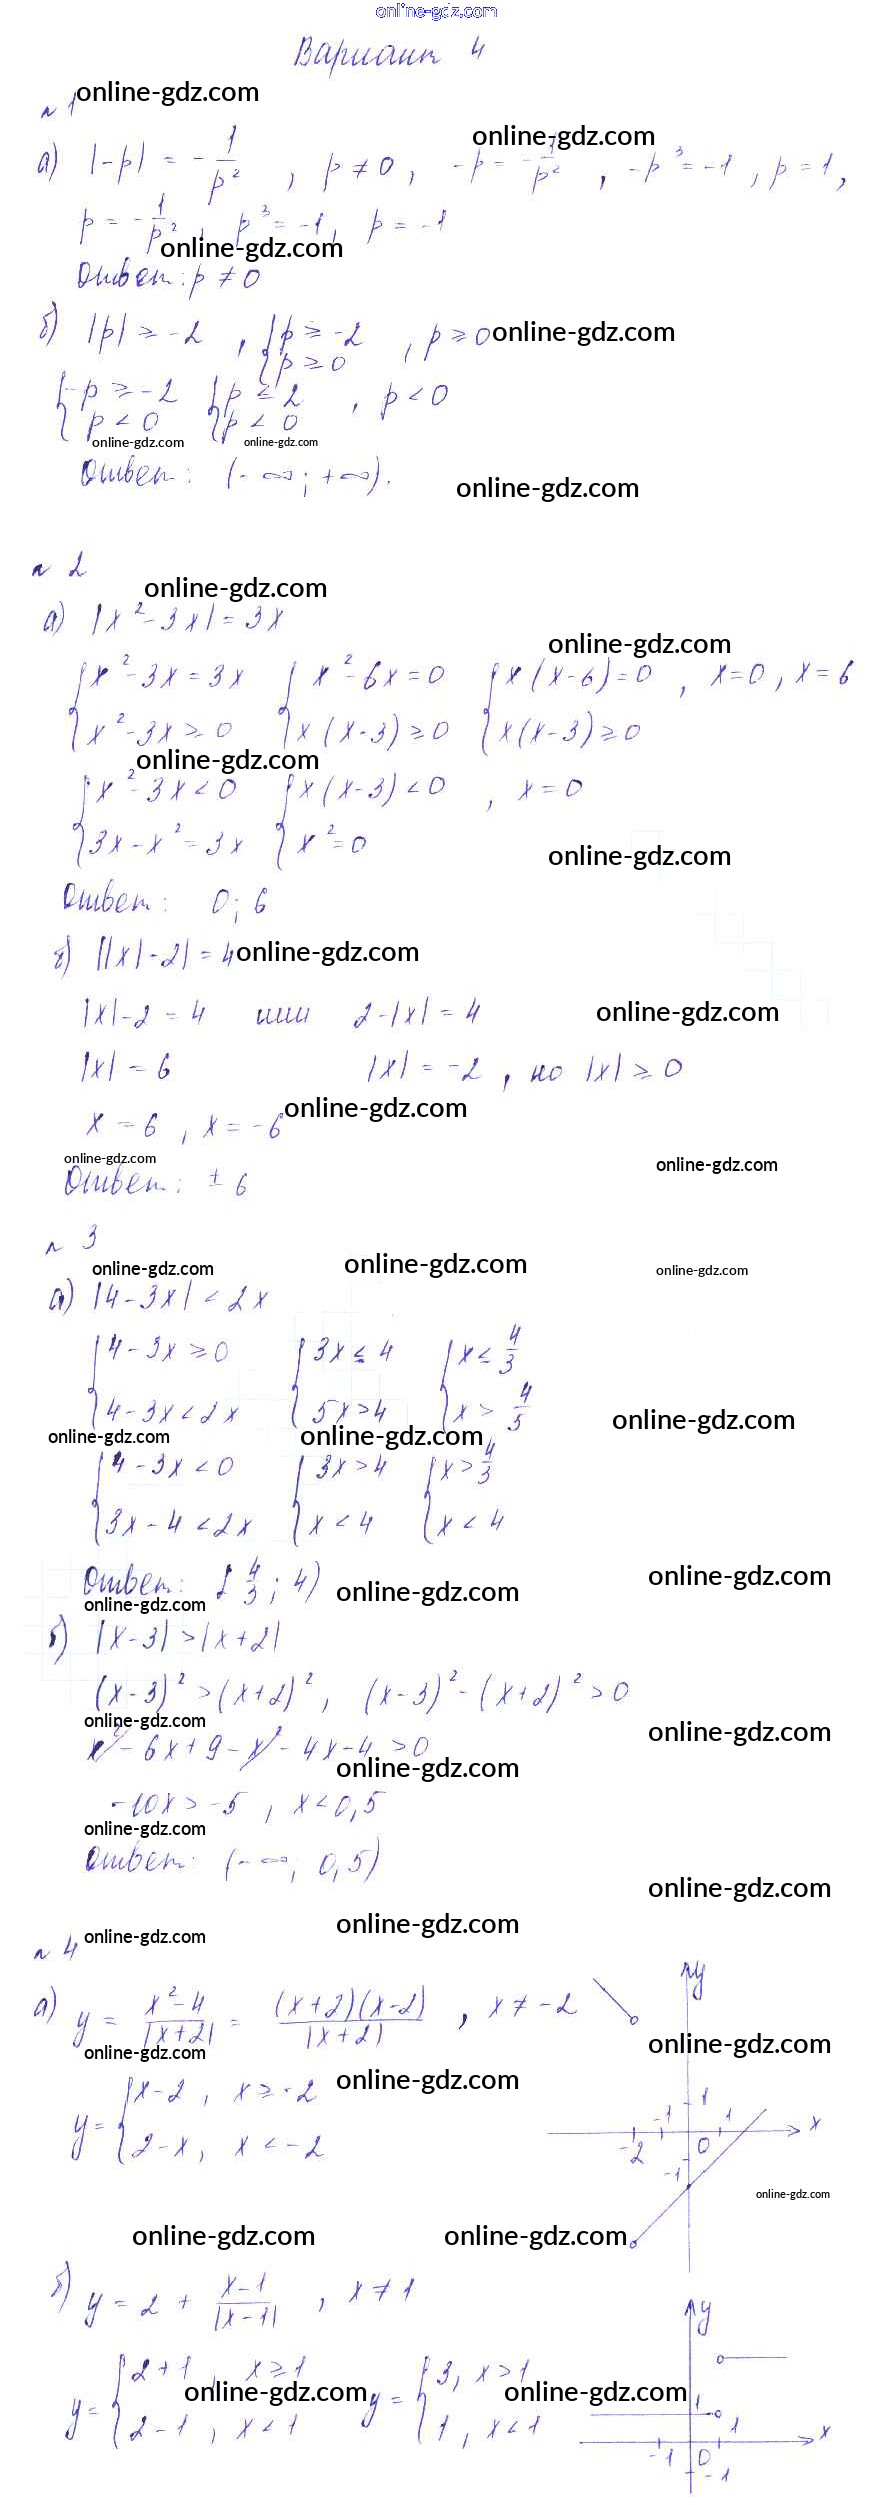 online-gdz.com
Вариант 4
online-gdz.com
n 1
online-gdz.com
а) |-p| = -1/p², p ≠ 0, -p = -1/p², -p³ = -1, p = 1,
p = -1/p², p³ = -1, p = -1
online-gdz.com
Ответ: p ≠ 0
б) |p| ≥ -2, {p ≥ -2 p ≥ 0, p ≥ 0
online-gdz.com
{-p ≥ -2 p < 0 {p ≤ 2 p < 0, p < 0
online-gdz.com online-gdz.com
Ответ: (-∞; +∞).
online-gdz.com
n 2
online-gdz.com
а) |x² - 3x| = 3x
online-gdz.com
{x² - 3x = 3x {x² - 6x = 0 {x(x-6) = 0, x=0, x=6
x² - 3x ≥ 0 x(x-3) ≥ 0 x(x-3) ≥ 0
online-gdz.com
{x² - 3x < 0 {x(x-3) < 0, x = 0
3x - x² = 3x x² = 0
online-gdz.com
Ответ: 0; 6
б) ||x| - 2| = 4
online-gdz.com
|x| - 2 = 4 или 2 - |x| = 4
online-gdz.com
|x| = 6 |x| = -2, но |x| ≥ 0
online-gdz.com
x = 6, x = -6
online-gdz.com online-gdz.com
Ответ: ± 6
n 3
online-gdz.com online-gdz.com online-gdz.com
а) |4 - 3x| < 2x
{4 - 3x ≥ 0 {3x ≤ 4 {x ≤ 4/3
4 - 3x < 2x 5x > 4 x > 4/5
online-gdz.com online-gdz.com online-gdz.com
{4 - 3x < 0 {3x > 4 {x > 4/3
3x - 4 < 2x x < 4 x < 4
Ответ: [4/3; 4)
online-gdz.com online-gdz.com online-gdz.com
б) |x-3| > |x+2|
(x-3)² > (x+2)², (x-3)² - (x+2)² > 0
online-gdz.com online-gdz.com
x² - 6x + 9 - x² - 4x - 4 > 0
online-gdz.com
-10x > -5, x < 0,5
online-gdz.com
Ответ: (-∞; 0,5)
online-gdz.com
online-gdz.com
n 4
online-gdz.com
а) y = x²-4/|x+2| = (x+2)(x-2)/|x+2|, x ≠ -2
online-gdz.com online-gdz.com
y
online-gdz.com
y = {x-2, x ≥ -2
2-x, x < -2
1
-1 1 x
-2 0
-1
online-gdz.com
online-gdz.com online-gdz.com
б) y = 2 + x-1/|x-1|, x ≠ 1
y
y = {2+1, x ≥ 1 y = {3, x > 1
online-gdz.com online-gdz.com
2-1, x < 1 1, x < 1
1
1 x
-1 0
-1